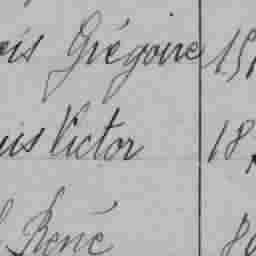 ois Grégoire 15
uis Victor 18
René 80